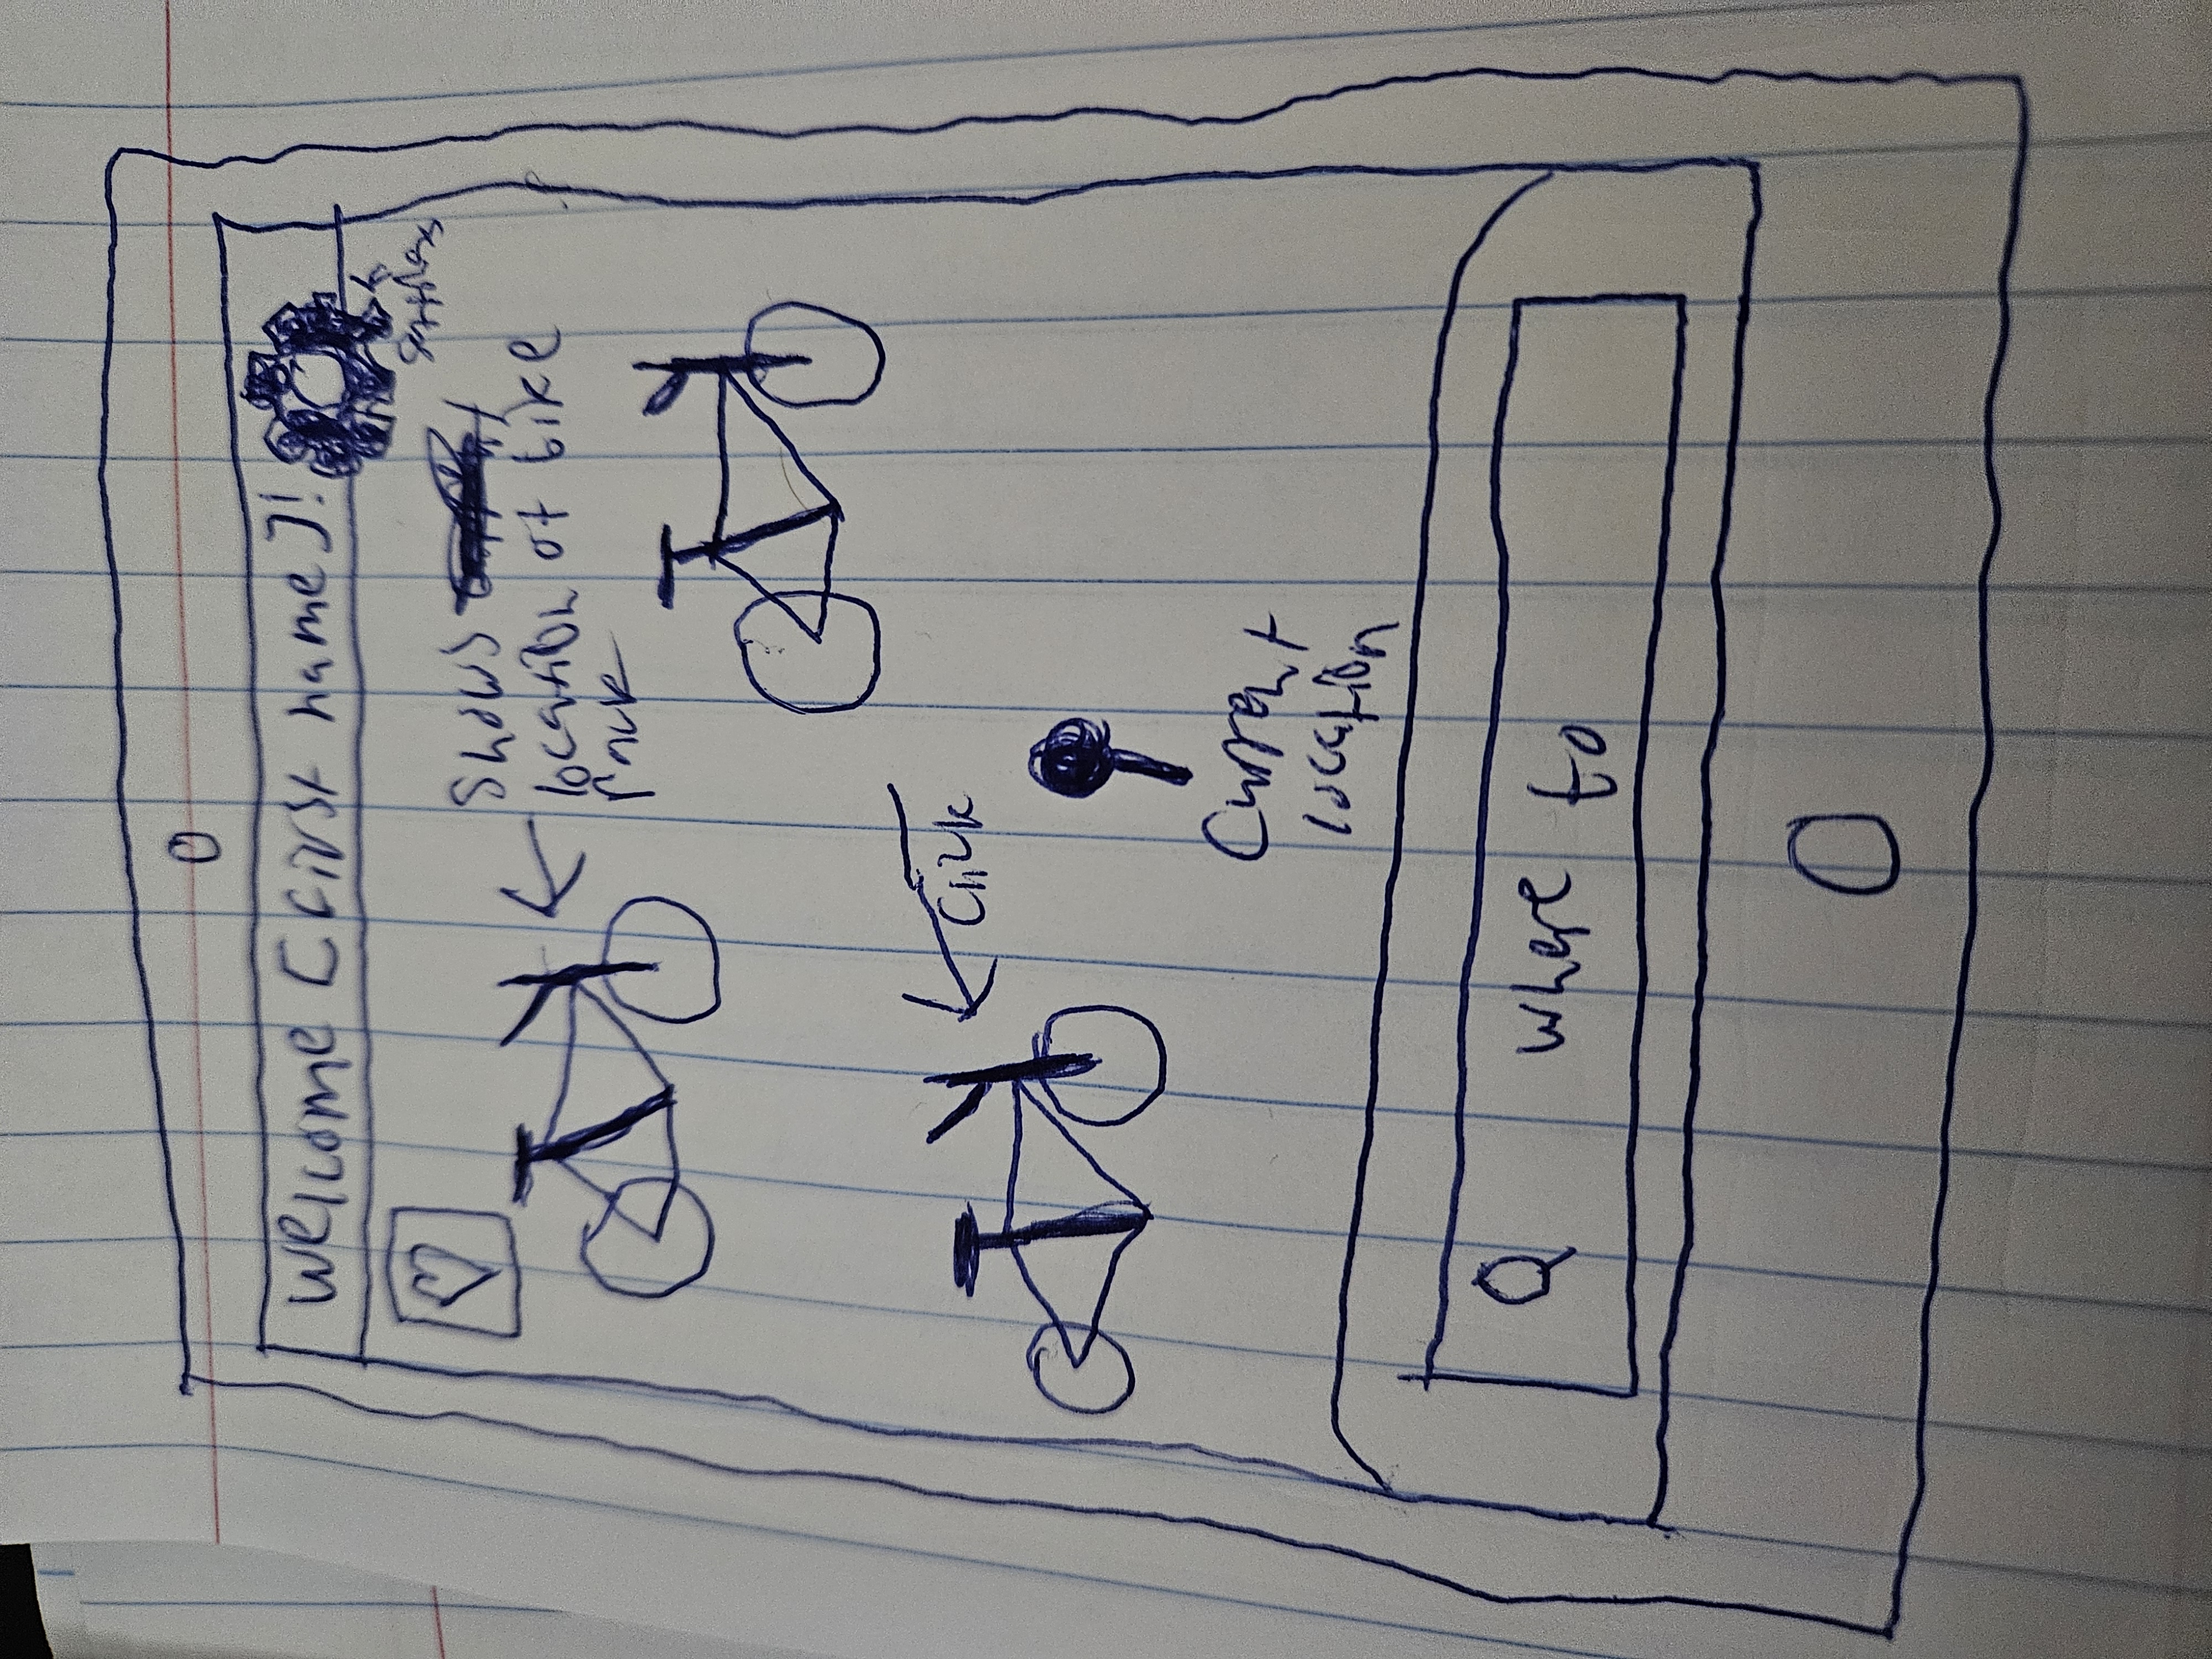 Welcome [first name]!
settings
Shows
location of bike
rack
Click
Current
location
Where to